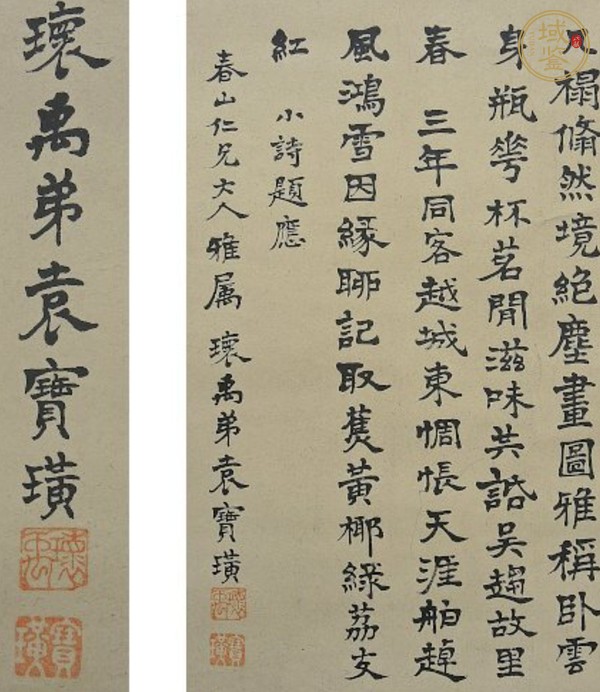 几榻翛然境絶塵畫圖雅稱卧雲
身瓶華杯茗閒滋味共話吳趨故里
春 三年同客越城東惆悵天涯舶趠
風鴻雪因緣聊記取蕉黃椰綠荔支
紅 小詩題應
春山仁兄大人雅属 瓌禹弟袁寶璜
瓌禹
寶璜
瓌禹弟袁寶璜
瓌禹
寶璜
域鉴